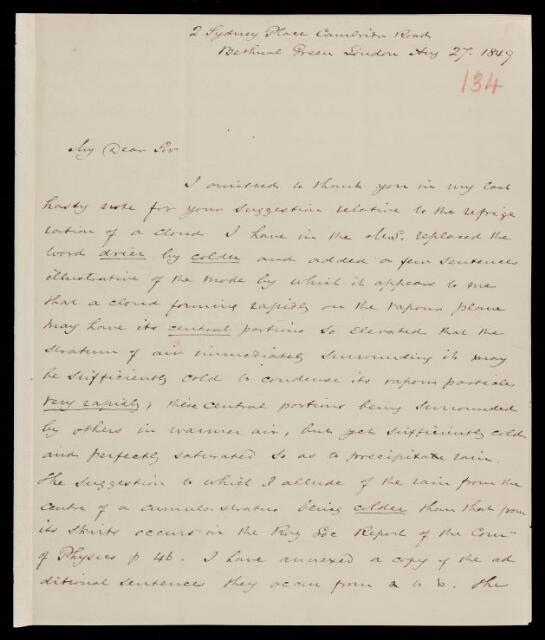 2 Sydney Place Cambridge Road
Bethnal Green London Aug 27. 1849
134
My Dear Sir
I omitted to thank you in my last
hasty note for your suggestion relative to the refrige
ration of a cloud I have in the M.S. replaced the
word drier by colder and added a few sentences
illustrative of the mode by which it appears to me
that a cloud forming rapidly on the vapour plane
may have its central portions so elevated that the
stratum of air immediately surrounding it may
be sufficiently cold to condense its vapour particles
very rapidly; these central portions being surrounded
by others in warmer air, but yet sufficiently cold
and perfectly saturated so as to precipitate rain.
The suggestion to which I allude of the rain from the
centre of a cumulostratus being colder than that from
its skirts occurs in the Roy Soc Report of the Com
of Physics p 46. I have annexed a copy of the ad
ditional sentences they occur from a to b. The